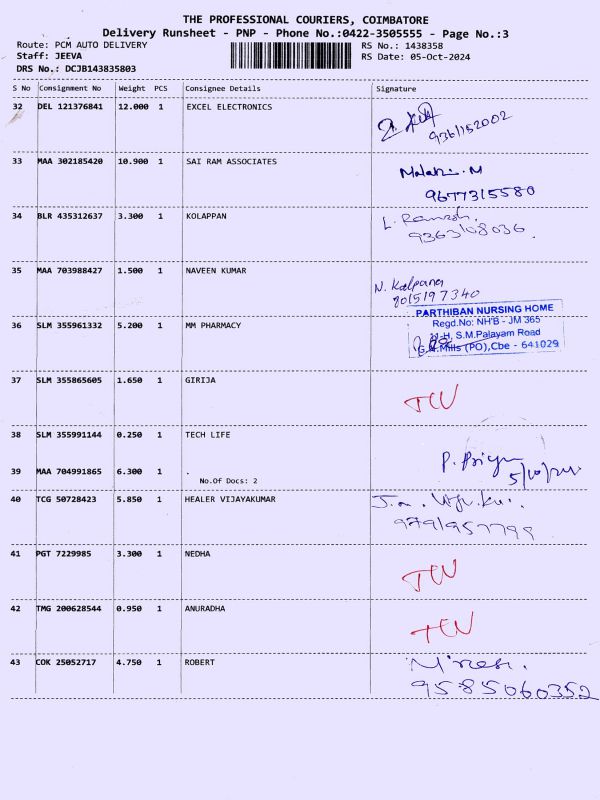 THE PROFESSIONAL COURIERS, COIMBATORE
Delivery Runsheet - PNP - Phone No.:0422-3505555 - Page No.:3
Route: PCM AUTO DELIVERY RS No.: 1438358
Staff: JEEVA RS Date: 05-Oct-2024
DRS No.: DCJB143835803
S No Consignment No Weight PCS Consignee Details Signature
32 DEL 121376841 12.000 1 EXCEL ELECTRONICS
9361152002
33 MAA 302185420 10.900 1 SAI RAM ASSOCIATES
M
9677315580
34 BLR 435312637 3.300 1 KOLAPPAN
L. Ramesh.
9363108036.
35 MAA 703988427 1.500 1 NAVEEN KUMAR
N. Kalpana
8015197340
PARTHIBAN NURSING HOME
36 SLM 355961332 5.200 1 MM PHARMACY
Regd.No: NH'B - JM 365
11-H, S.M.Palayam Road
G.N.Mills (PO),Cbe - 641029
37 SLM 355865605 1.650 1 GIRIJA
38 SLM 355991144 0.250 1 TECH LIFE
P. Priya
39 MAA 704991865 6.300 1 .
No.Of Docs: 2
5/10/24
40 TCG 50728423 5.850 1 HEALER VIJAYAKUMAR
9791957799
41 PGT 7229985 3.300 1 NEDHA
42 TMG 200628544 0.950 1 ANURADHA
43 COK 25052717 4.750 1 ROBERT
9585060352